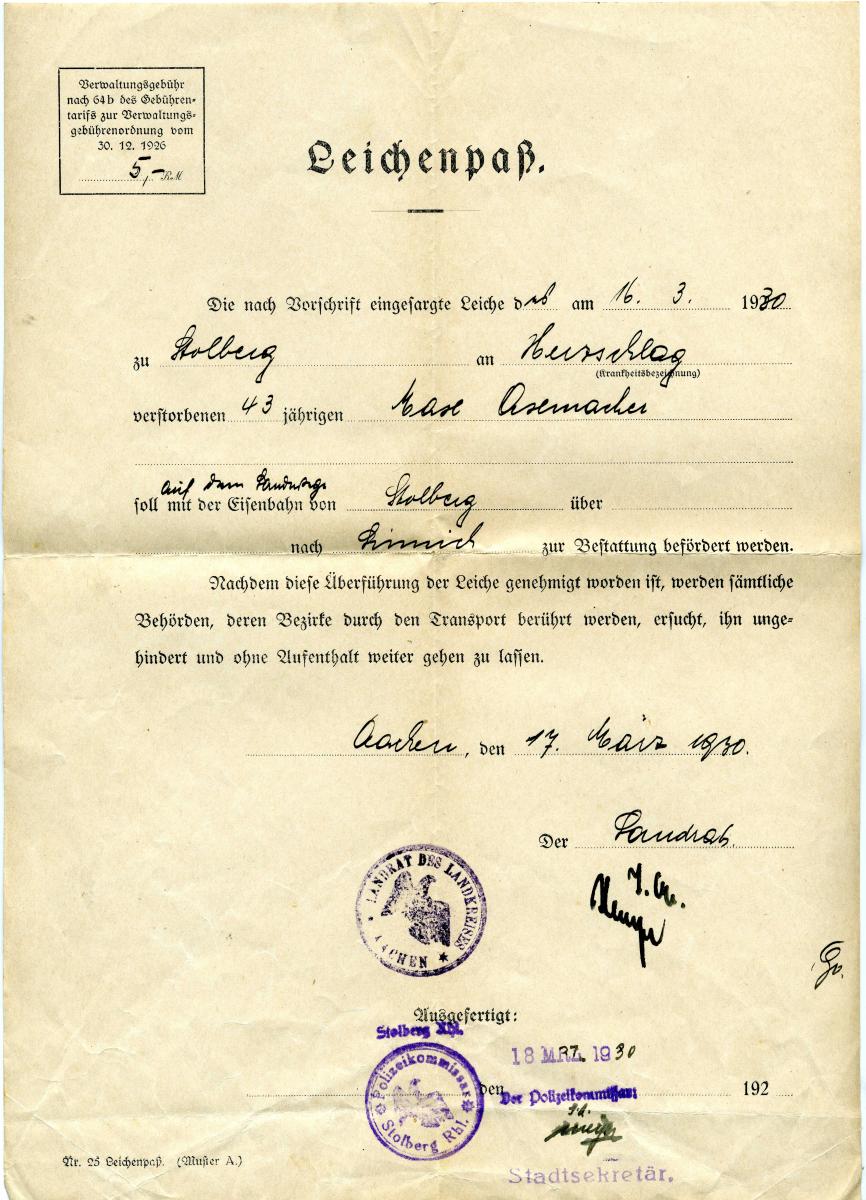 Verwaltungsgebühr
nach 64b des Gebühren-
tarifs zur Verwaltungs-
gebührenordnung vom
30. 12. 1926
5,- RM
Leichenpaß.
Die nach Vorschrift eingesargte Leiche des am 16. 3. 1930
zu Stolberg an Herzschlag
(Krankheitsbezeichnung)
verstorbenen 43 jährigen
auf dem Landwege
soll mit der Eisenbahn von Stolberg über
nach Linnich zur Bestattung befördert werden.
Nachdem diese Überführung der Leiche genehmigt worden ist, werden sämtliche
Behörden, deren Bezirke durch den Transport berührt werden, ersucht, ihn unge-
hindert und ohne Aufenthalt weiter gehen zu lassen.
Aachen, den 17. März 1930.
Der Landrat.
LANDRAT DES LANDKREISES AACHEN
Ausgefertigt:
Stolberg Rhl.
18 MRZ. 1930
Polizeikommissar Stolberg Rhl.
den 192
Der Polizeikommissar:
Stadtsekretär.
Nr. 25 Leichenpaß. (Muster A.)